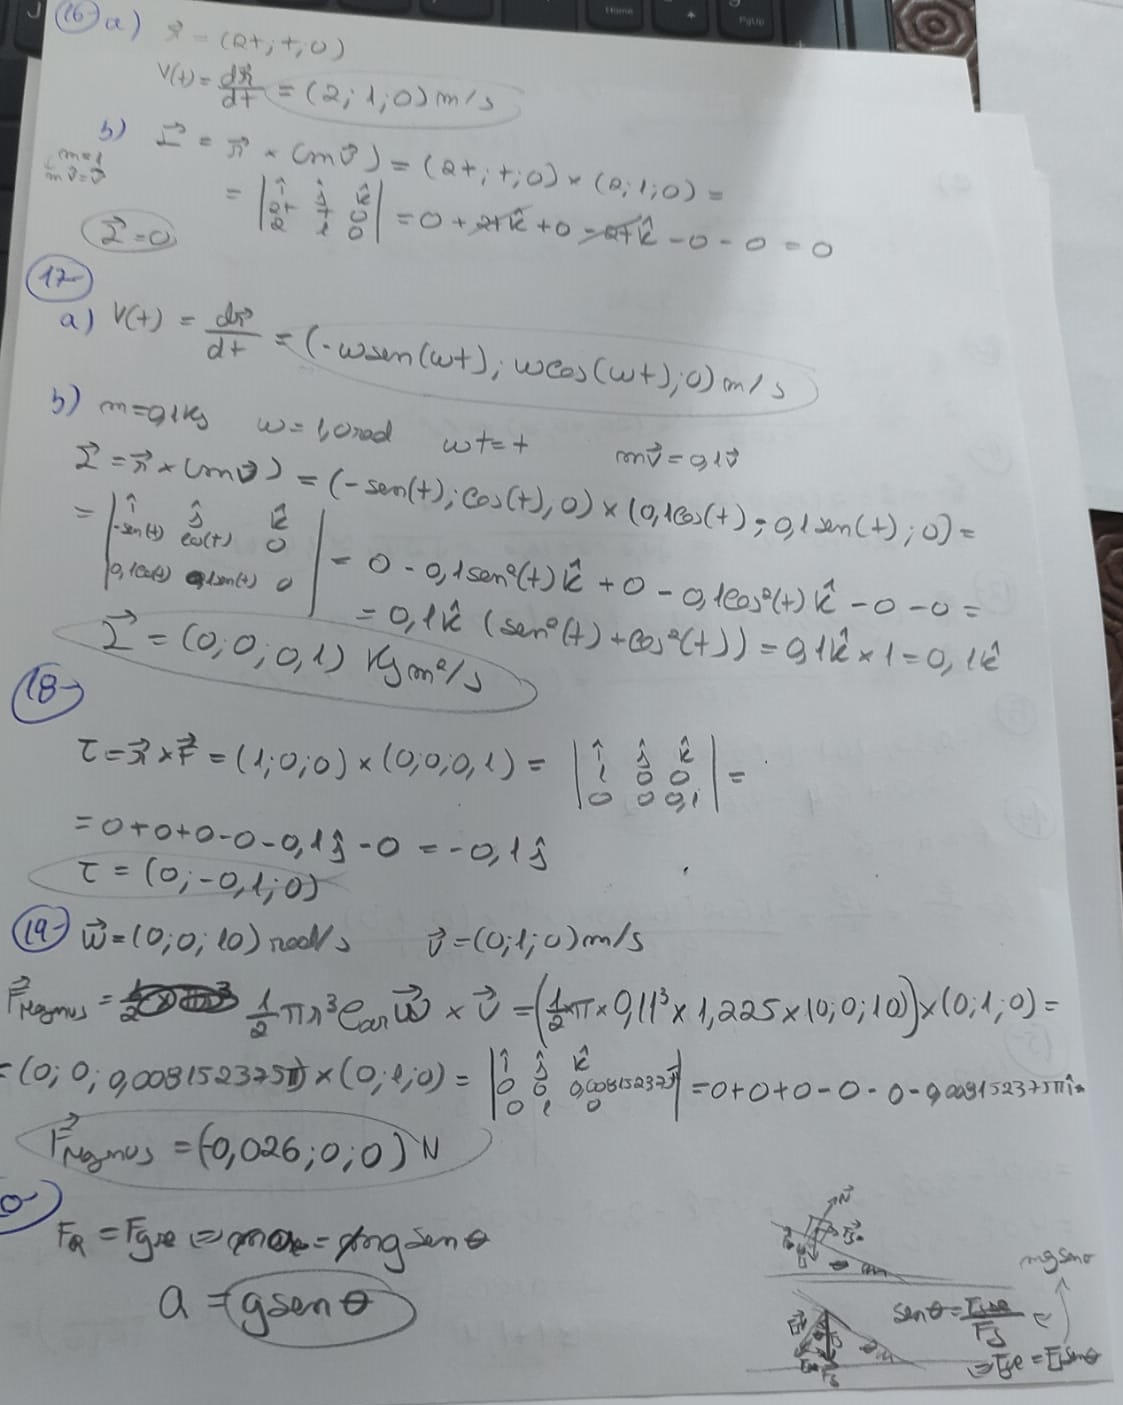 Home
PgUp
16- a) r⃗ = (2t; t; 0)
V(t) = dr⃗/dt = (2; 1; 0) m/s
b) L⃗ = r⃗ × (mv⃗) = (2t; t; 0) × (2; 1; 0) =
m=1
mv⃗=v⃗
= |î ĵ k̂; 2t t 0; 2 1 0| = 0 + 2tk̂ + 0 - 2tk̂ - 0 - 0 = 0
L⃗ = 0
17-
a) V(t) = dr⃗/dt = (-ωsen(ωt); ωcos(ωt); 0) m/s
b) m=0,1kg ω=1,0rad ωt=t mv⃗=0,1v⃗
L⃗ = r⃗ × (mv⃗) = (-sen(t); cos(t), 0) × (0,1cos(t); 0,1sen(t); 0) =
= |î ĵ k̂; -sen(t) cos(t) 0; 0,1cos(t) 0,1sen(t) 0| = 0 - 0,1sen²(t)k̂ + 0 - 0,1cos²(t)k̂ - 0 - 0 =
= 0,1k̂ (sen²(t) + cos²(t)) = 0,1k̂ × 1 = 0,1k̂
L⃗ = (0; 0; 0,1) Kgm²/s
18-
τ = r⃗ × F⃗ = (1; 0; 0) × (0; 0; 0,1) = |î ĵ k̂; 1 0 0; 0 0 0,1| =
= 0+0+0-0-0,1ĵ-0 = -0,1ĵ
τ = (0; -0,1; 0)
19- ω⃗ = (0; 0; 10) rad/s v⃗ = (0; 1; 0) m/s
F⃗Magnus = 1/2 πr³ρar ω⃗ × v⃗ = (1/2 × π × 0,11³ × 1,225 × (0; 0; 10)) × (0; 1; 0) =
= (0; 0; 0,008152375π) × (0; 1; 0) = |î ĵ k̂; 0 0 0,008152375π; 0 1 0| = 0+0+0-0-0-0,008152375πî =
F⃗Magnus = (-0,026; 0; 0) N
0-
FR = Fgx ⇒ ma = mg sen θ
a = g sen θ
N⃗
mg sen θ
sen θ = Fgx/Fg ⇒
⇒ Fgx = Fg sen θ